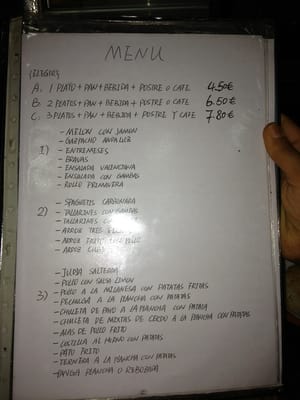 MENU
(ELEGIR)
A. 1 PLATO + PAN + BEBIDA + POSTRE O CAFE 4.50€
B. 2 PLATOS + PAN + BEBIDA + POSTRE O CAFE 6.50€
C. 3 PLATOS + PAN + BEBIDA + POSTRE Y CAFE 7.80€
- MELON CON JAMON
- GAZPACHO ANDALUZ
1) - ENTREMESES
- BRAVAS
- ENSALADA VALENCIANA
- ENSALADA CON GAMBAS
- ROLLO PRIMAVERA
- SPAGUETIS CARBONARA
2) - TALLARINES CON GAMBAS
- TALLARINES
- ARROZ TRES
- ARROZ FRITO CON POLLO
- ARROZ
- JUDIA SALTEADA
- POLLO CON SALSA LIMON
3) - POLLO A LA MILANESA CON PATATAS FRITAS
- PECHUGA A LA PLANCHA CON PATATAS
- CHULETA DE PAVO A LA PLANCHA CON PATATA
- CHULETA DE MIXTAS DE CERDO A LA PLANCHA CON PATATAS
- ALAS DE POLLO FRITO
- COSTILLA AL HORNO CON PATATAS
- PATO FRITO
- TERNERA A LA PLANCHA CON PATATAS
- PANGA PLANCHA O REBOSADA